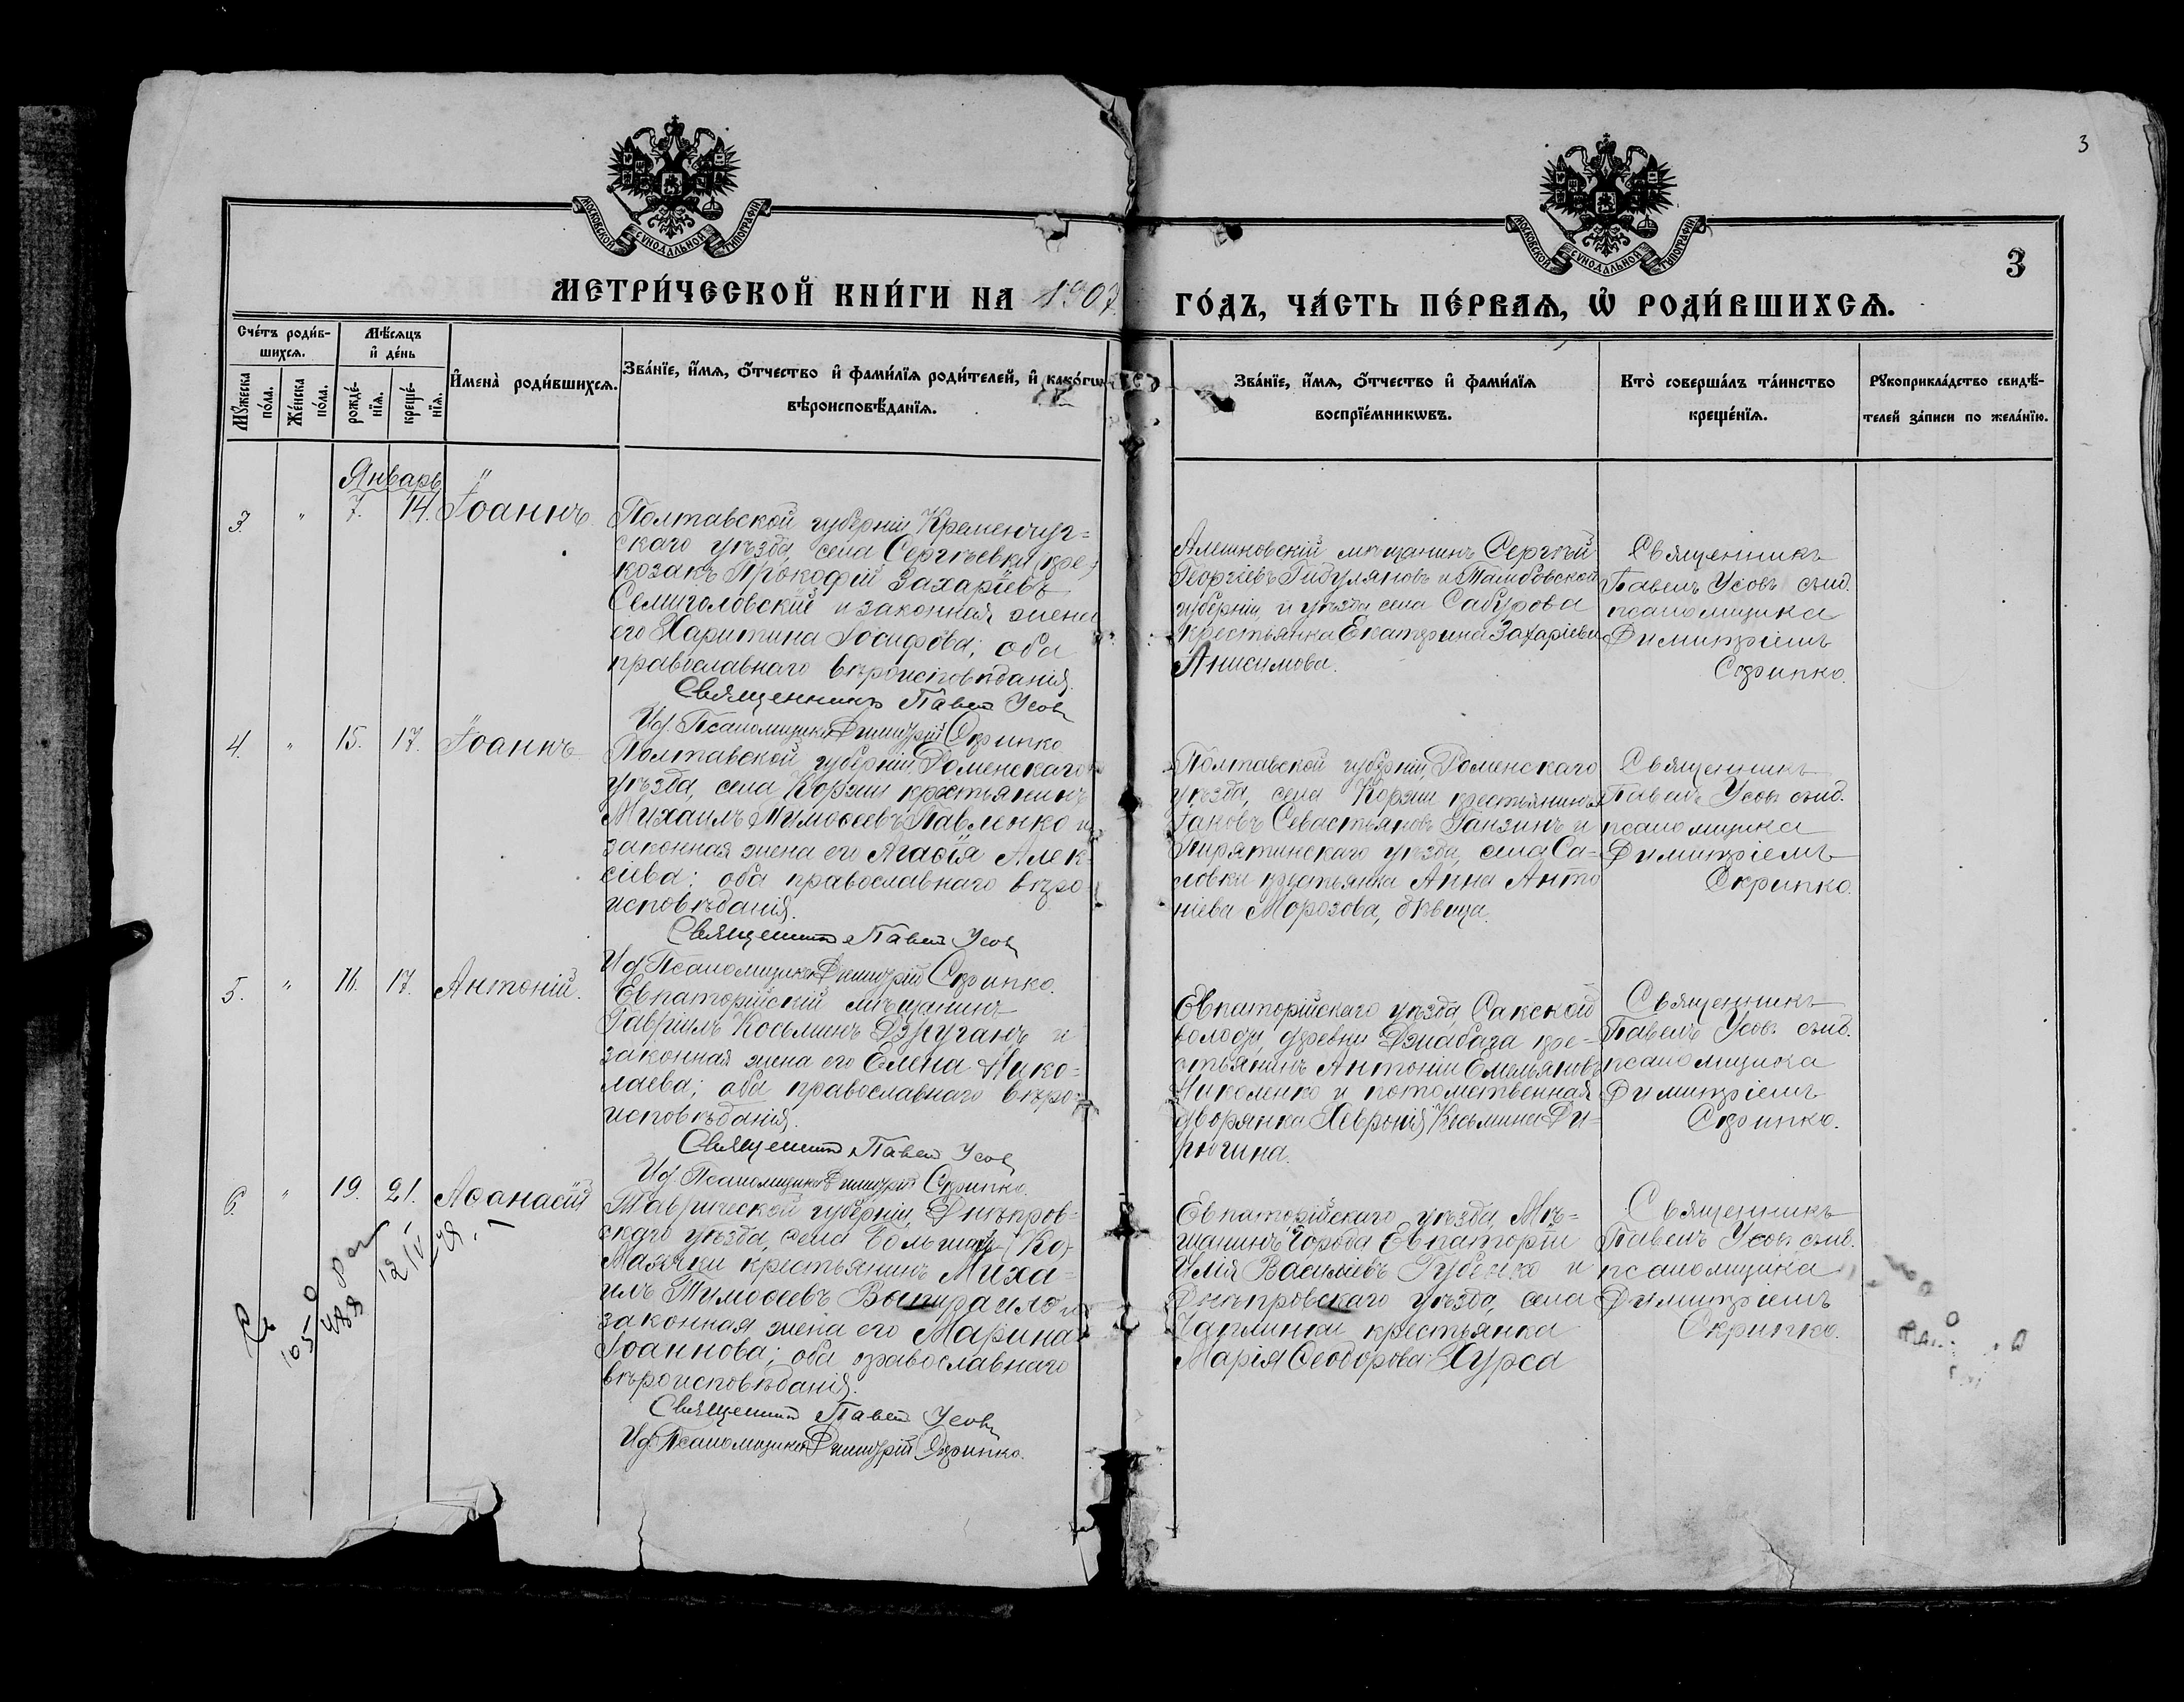 3
МОСКОВСКОЙ СѴНОДАЛЬНОЙ ТИПОГРАФІИ
МОСКОВСКОЙ СѴНОДАЛЬНОЙ ТИПОГРАФІИ
3
МЕТРИ́ЧЕСКОЙ КНИ́ГИ НА 1907
ГО́ДЪ, ЧА́СТЬ ПЕ́РВАѦ, Ѡ҆ РОДИ́ВШИХСѦ.
Сче́тъ роди́в-
шихсѧ.
Мѣ́сѧцъ
и҆ де́нь
Мꙋ́жеска
по́ла.
Же́нска
по́ла.
рожде́-
нїѧ.
креще́-
нїѧ.
И҆мена̀ роди́вшихсѧ.
Зва́нїе, и҆́мѧ, ѻ҆́тчество и҆ фами́лїѧ роди́телей, и҆ како́гѡ
вѣроисповѣ́данїѧ.
Зва́нїе, и҆́мѧ, ѻ҆́тчество и҆ фами́лїѧ
воспрїе́мникѡвъ.
Кто̀ соверша́лъ та́инство
креще́нїѧ.
Рꙋкоприкла́дство свидѣ́-
телей за́писи по жела́нїю.
Январь
3. " 7. 14. Іоаннъ.
Полтавской губерніи, Кременчуг-
скаго уѣзда, села Сергѣевки
козакъ Прокофій Захаріевъ
Семиголовскій и законная жена
его Харитина Іосифова; оба
православнаго вѣроисповѣданія.
Священникъ Павелъ Усовъ
И. д. Псаломщика Димитрій Скрипко
Алешковскій мѣщанинъ Сергѣй
Георгіевъ Гидуляновъ и Тамбовской
губерніи и уѣзда села Сабурова
крестьянка Екатерина Захаріева
Анисимова.
Священникъ
Павелъ Усовъ съ и.д.
псаломщика
Димитріемъ
Скрипко.
4. " 15. 17. Іоаннъ
Полтавской губерніи, Роменскаго
уѣзда, села Коржи крестьянинъ
Михаилъ Тимоѳеевъ Павленко и
законная жена его Агаѳія Алек-
сіева; оба православнаго вѣро-
исповѣданія.
Священникъ Павелъ Усовъ
И д Псаломщика Димитрій Скрипко.
Полтавской губерніи, Роменскаго
уѣзда, села Коржи крестьянинъ
Іаковъ Севастьяновъ Ганзинъ и
Пирятинскаго уѣзда, села Са-
ловки крестьянка Анна Анто
ніева Морозова, дѣвица.
Священникъ
Павелъ Усовъ съ и.д.
псаломщика
Димитріемъ
Скрипко.
5. " 16. 17. Антоній.
Евпаторійскій мѣщанинъ
Гавріилъ Косьминъ Дэруганъ и
законная жена его Елена Нико-
лаева; оба православнаго вѣро-
исповѣданія.
Священникъ Павелъ Усовъ
И д Псаломщика Димитрій Скрипко.
Евпаторійскаго уѣзда, Сакской
волости, деревни Джабага кре-
стьянинъ Антоній Емельяновъ
Николенко и потомственная
дворянка Хевронія Косьмина Ди-
рюгина.
Священникъ
Павелъ Усовъ съ и.д.
псаломщика
Димитріемъ
Скрипко.
6. " 19. 21. Аѳанасій
Таврической губерніи, Днѣпров-
скаго уѣзда, села Большой
Маячки крестьянинъ Миха-
илъ Тимоѳеевъ Выпирайло и
законная жена его Марина
Іоаннова; оба православнаго
вѣроисповѣданія.
Священникъ Павелъ Усовъ
И д Псаломщика Димитрій Скрипко.
Евпаторійскаго уѣзда, Мѣ-
щанинъ города Евпаторіи
Илія Василіевъ Губенко и
Днѣпровскаго уѣзда, села
Чаплинки крестьянка
Марія Ѳеодорова Хурса
Священникъ
Павелъ Усовъ съ и.д.
псаломщика
Димитріемъ
Скрипко.